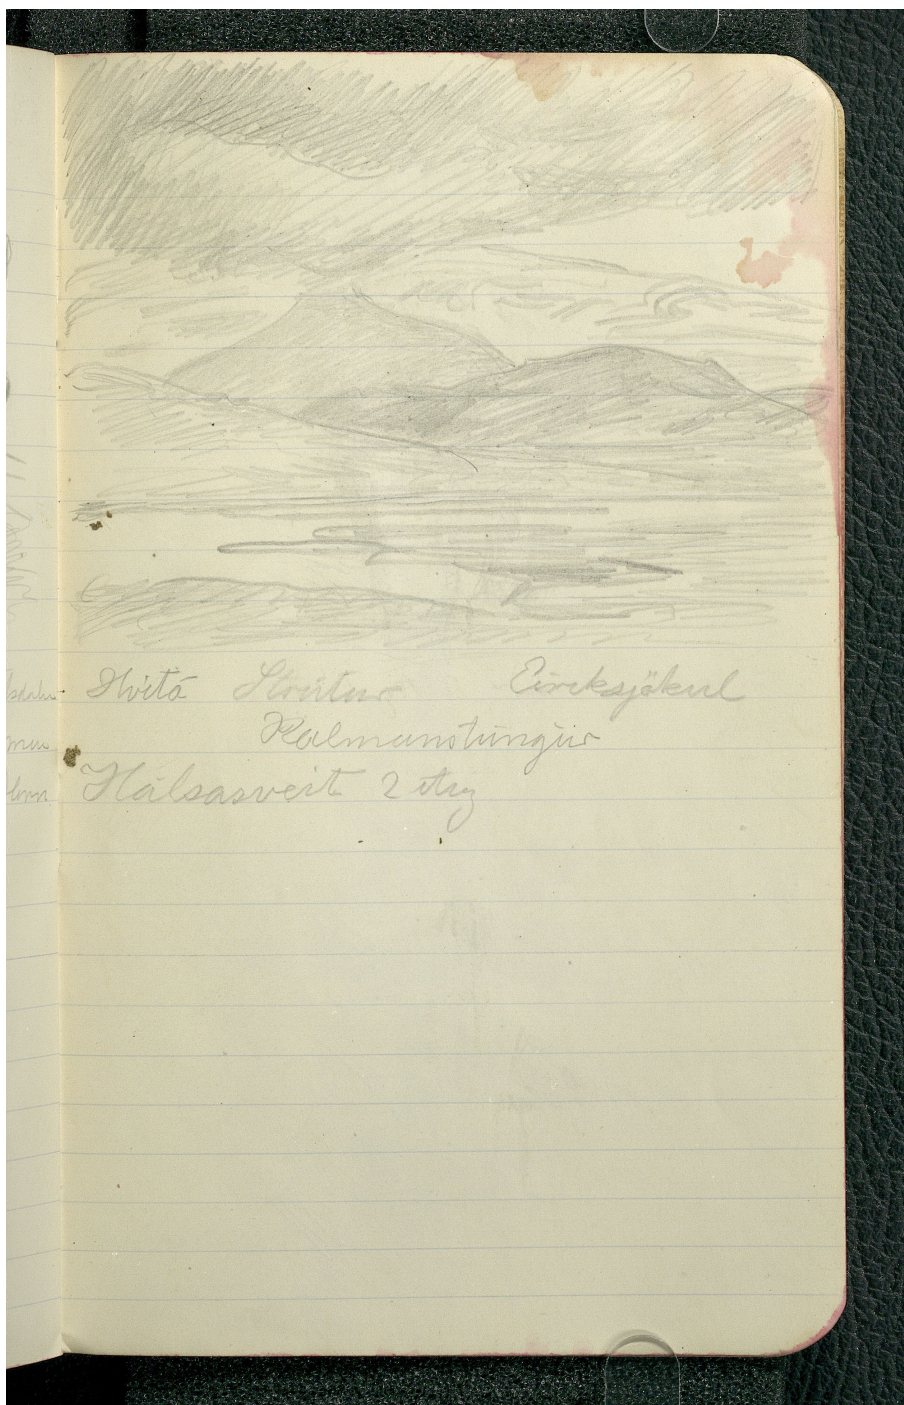 Hvitá Strútur Eireksjökul
Kalmanstúngúr
Hálsasveit 2